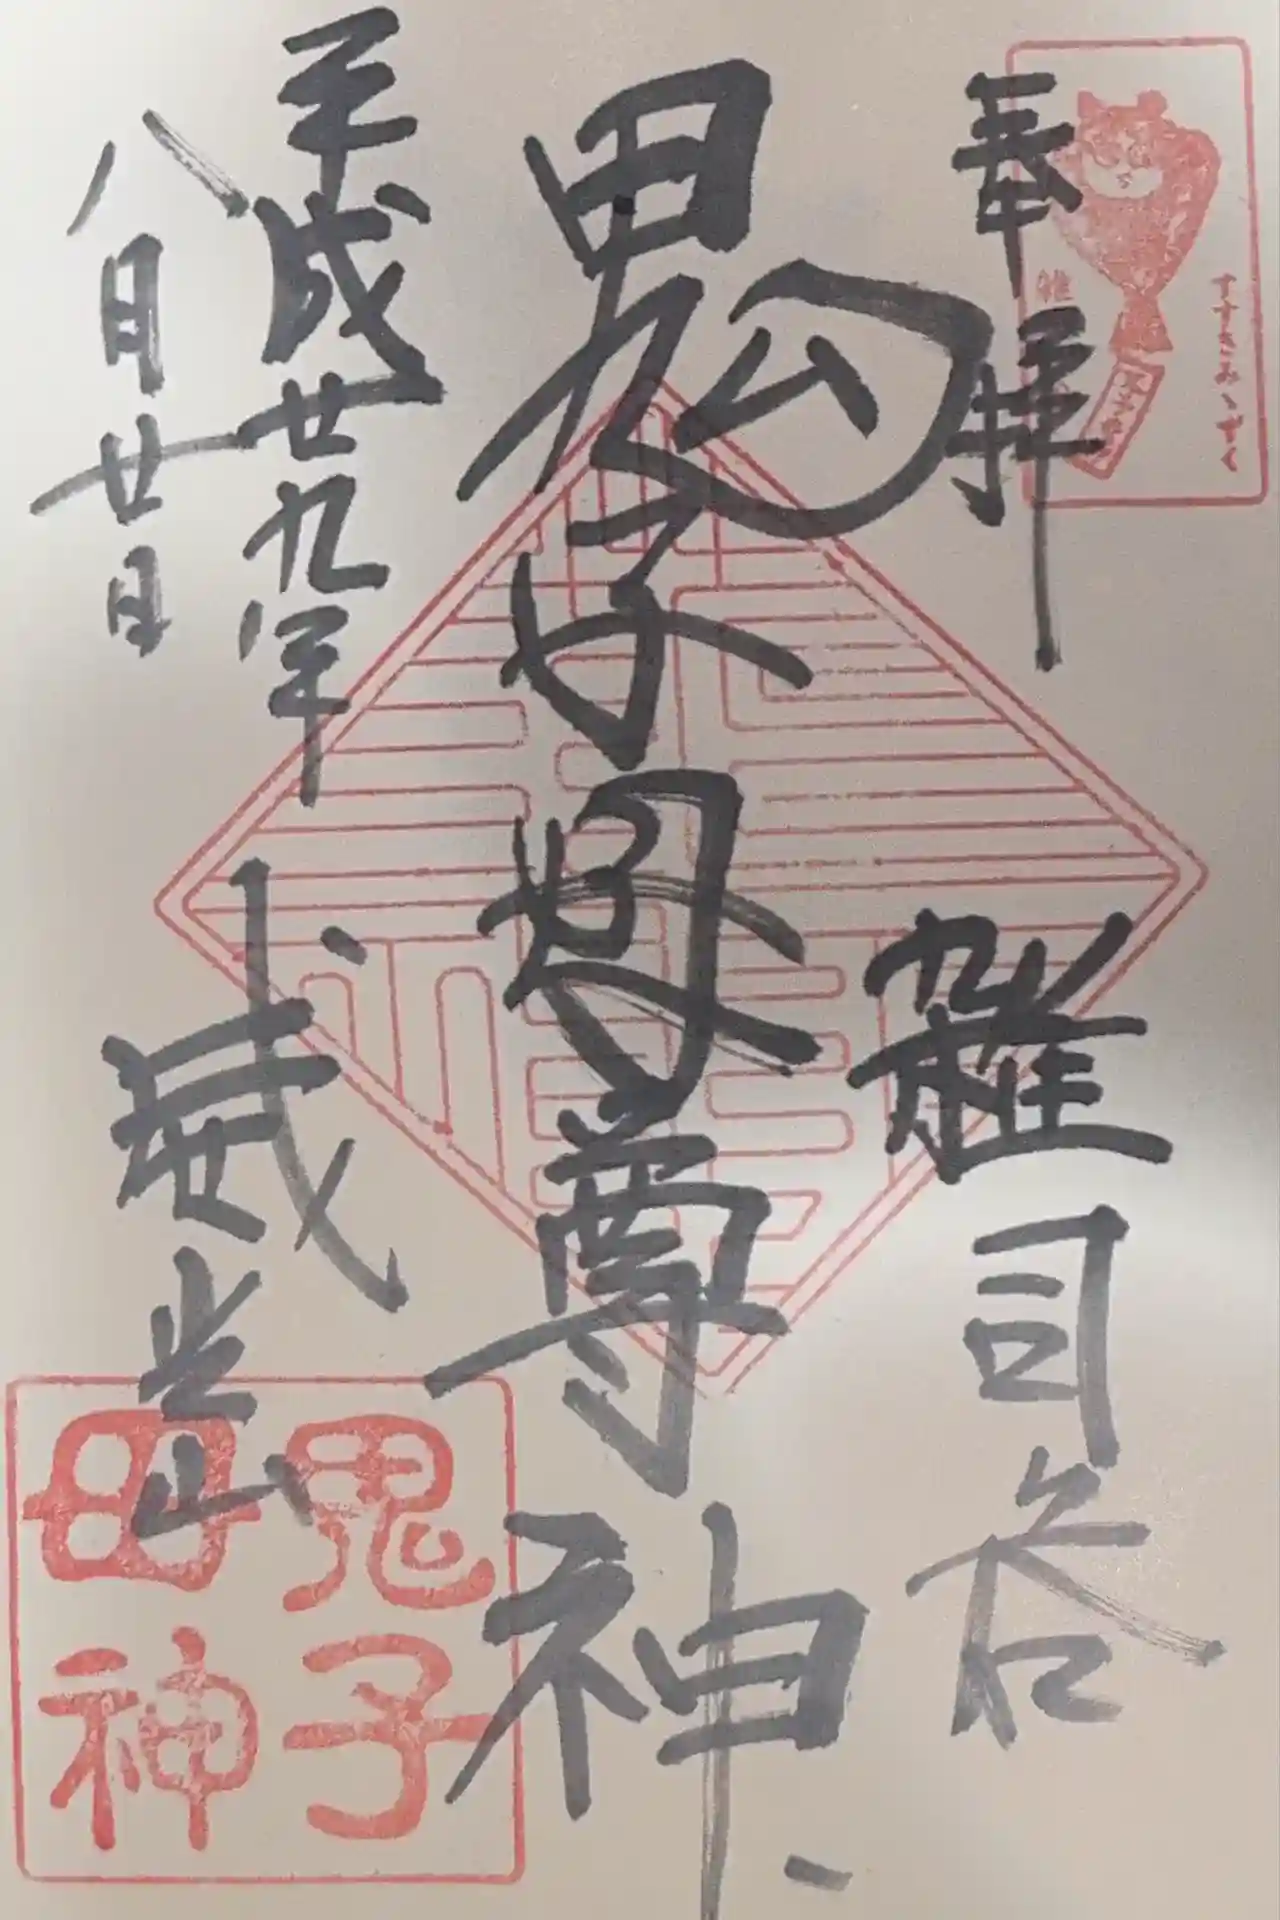 奉拝
雑司谷
すすきみゝずく
鬼子母尊神
平成廿九年
八月廿日
威光山
鬼子
母神